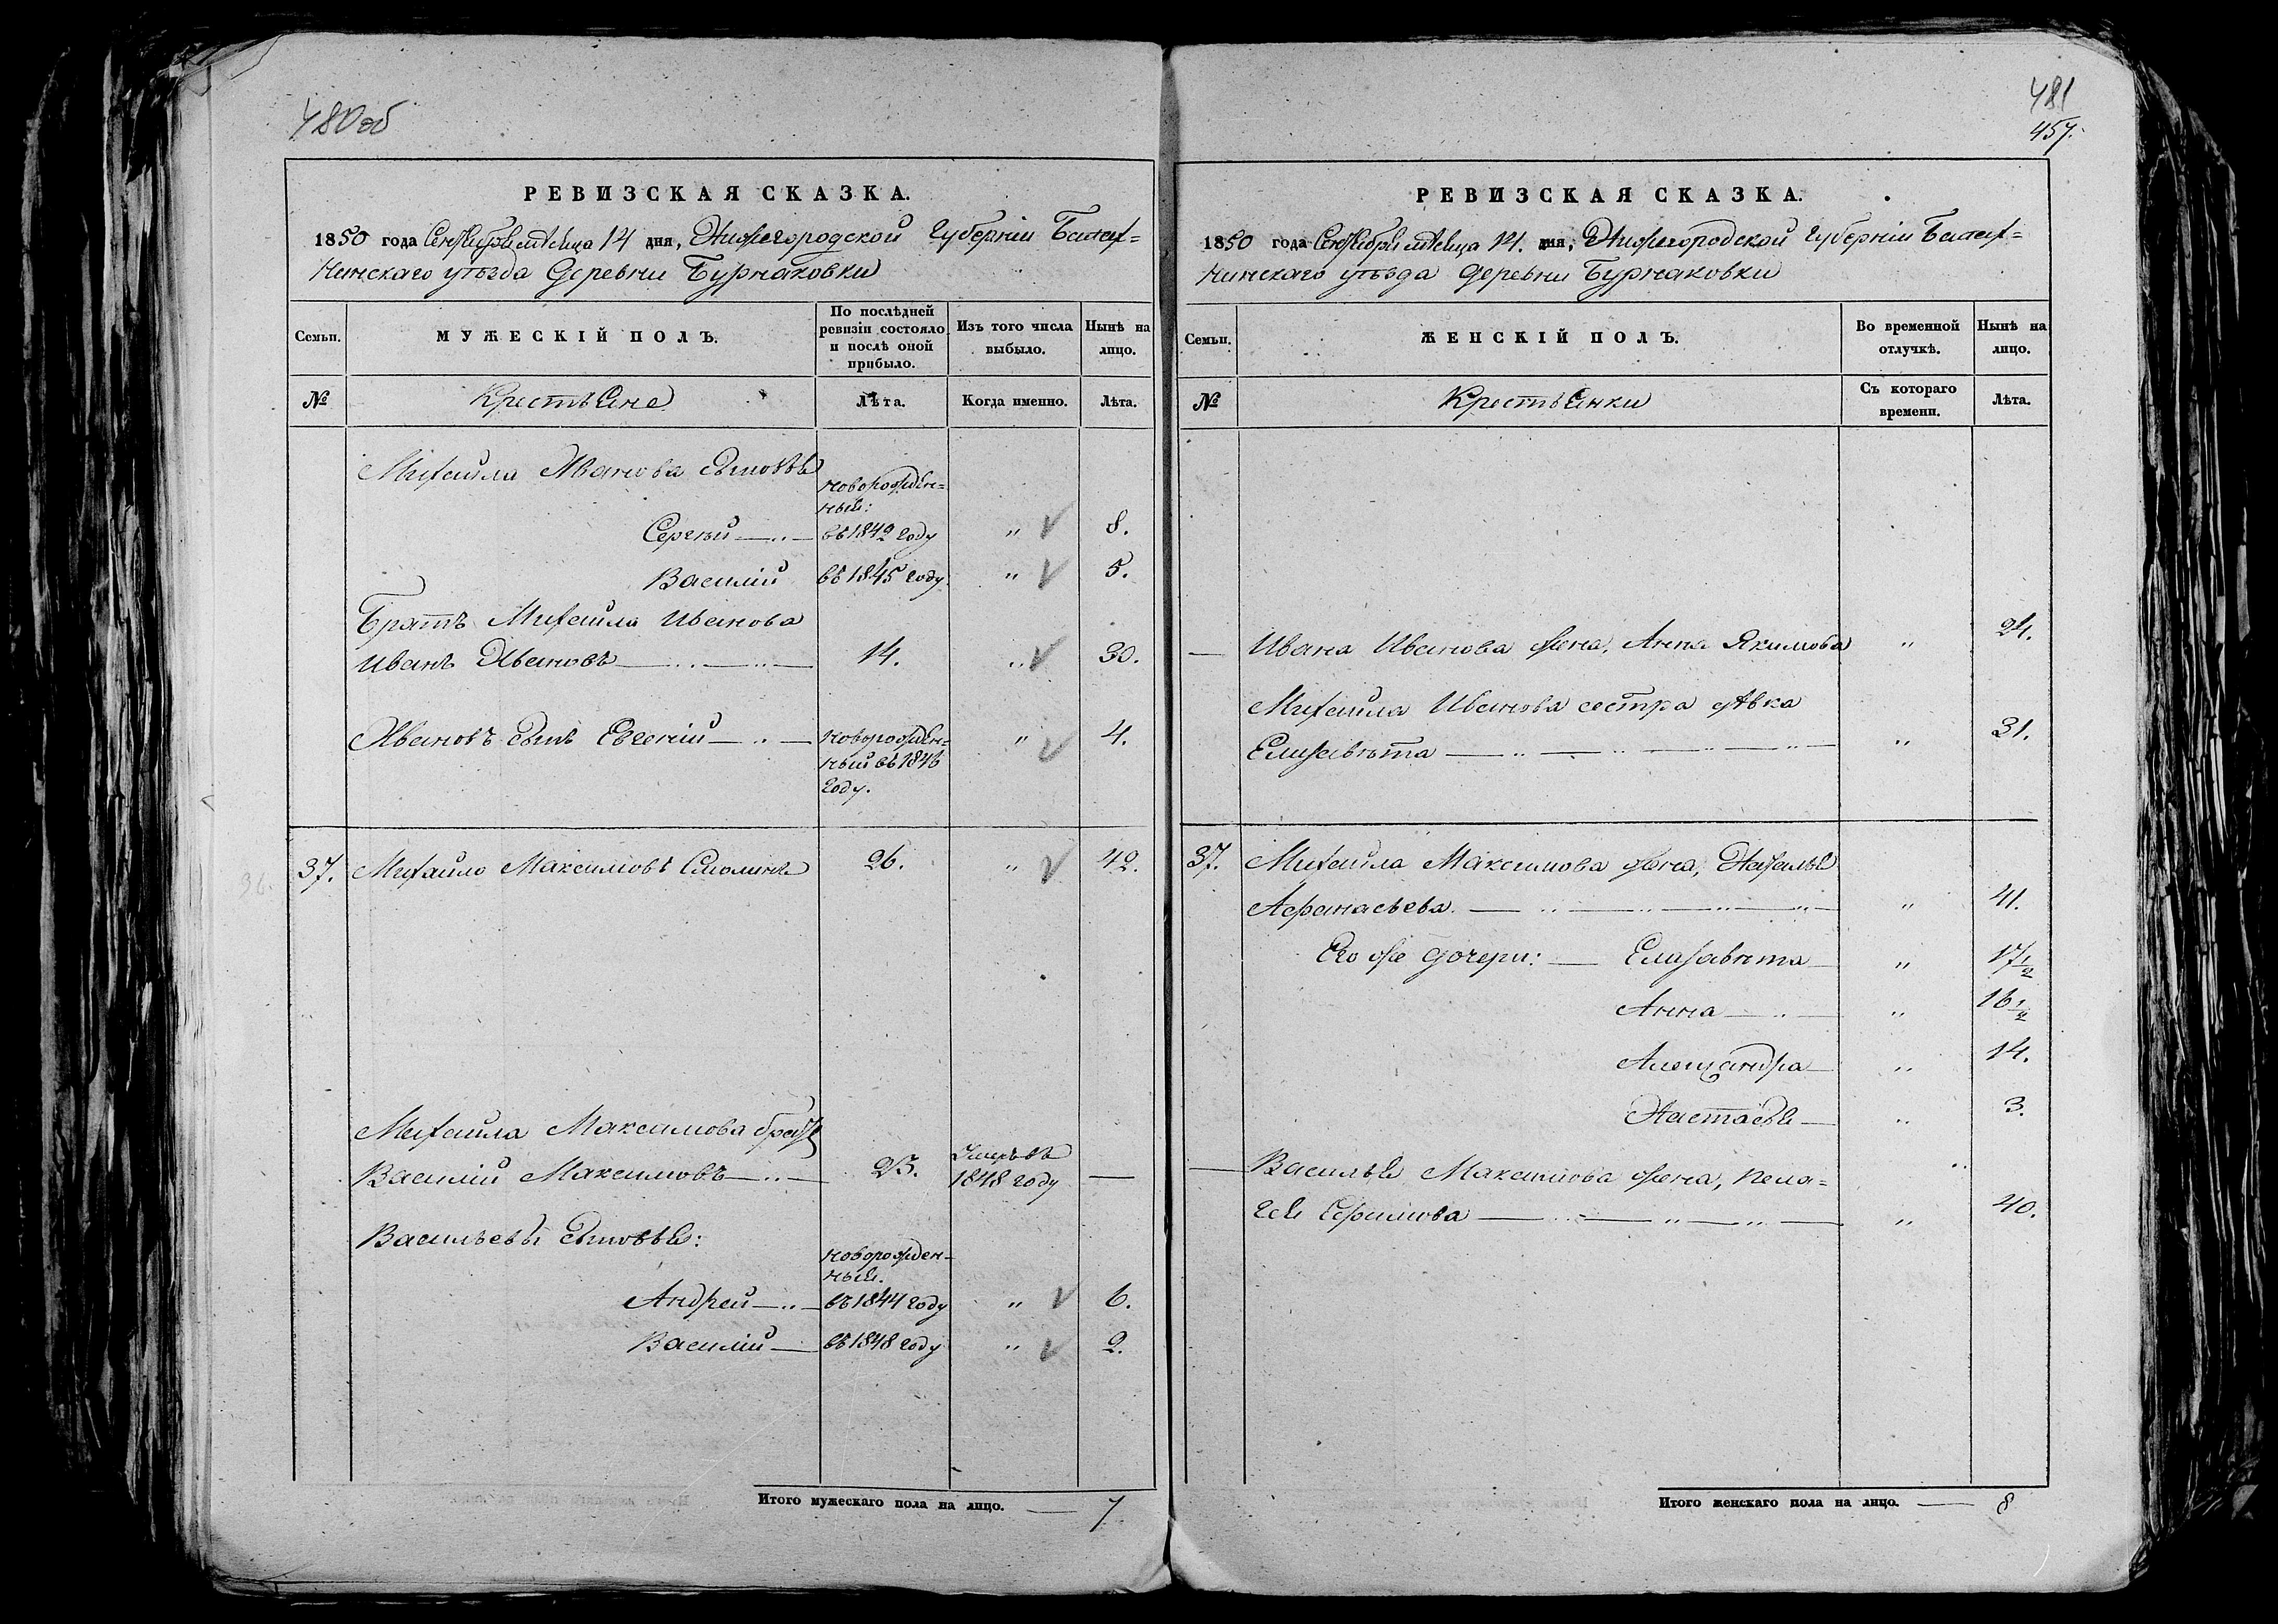 480об
РЕВИЗСКАЯ СКАЗКА.
1850 года Сентября мѣсяца 14 дня, Нижегородской Губерніи Балах=
нинскаго уѣзда Деревни Бурнаковки
Семьи. МУЖЕСКІЙ ПОЛЪ. По послѣдней ревизіи состояло и послѣ оной прибыло. Изъ того числа выбыло. Нынѣ на лицо.
№ Крестьяне Лѣта. Когда именно. Лѣта.
Михаила Иванова сыновья
новорожден=
ныя:
Сергѣй въ 1842 году " 8.
Василій въ 1845 году " 5.
Братъ Михаила Иванова
Иванъ Ивановъ 14. " 30.
Ивановъ сынъ Евгений новорожден= " 4.
ный въ 1846
году.
37. Михайло Максимовъ Смолинъ 26. " 42.
Михаила Максимова братъ
Василій Максимовъ 25. Умеръ въ 1848 году —
Васильевы сыновья:
новорожден-
ныя.
Андрей въ 1844 году " 6.
Василій въ 1848 году " 2.
Итого мужескаго пола на лицо. 7
481
457.
РЕВИЗСКАЯ СКАЗКА.
1850 года Сентября мѣсяца 14. дня, Нижегородской Губерніи Балах=
нинскаго уѣзда деревни Бурнаковки
Семьи. ЖЕНСКІЙ ПОЛЪ. Во временной отлучкѣ. Нынѣ на лицо.
№ Крестьянки Съ котораго времени. Лѣта.
— Ивана Иванова жена, Анна Якимова " 24.
Михаила Иванова сестра дѣвка
Елизавѣта " 31.
37. Михаила Максимова жена, Наталья
Афанасьева. " 41.
Его же дочери: — Елизавѣта " 17 1/2
Анна " 16 1/2
Александра " 14.
Настасья " 3.
— Василья Максимова жена, Пела= "
гея Ефимова " 40.
Итого женскаго пола на лицо. — 8